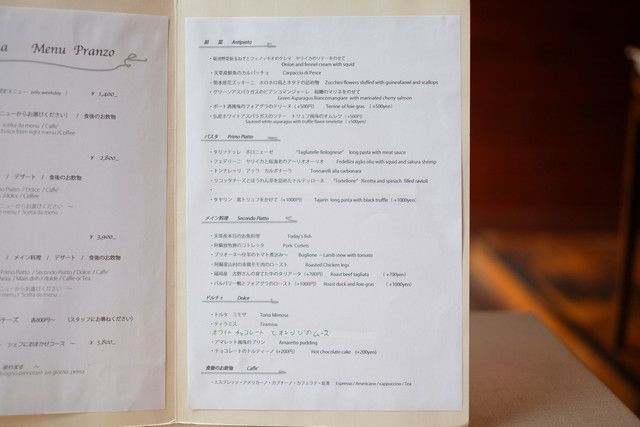 Menu Pranzo
only weekday /
¥ 1,400._
ニューからお選びください) / 食後のお飲物
Scelta da menu / Caffè
¥ 2,800._
/ デザート / 食後のお飲物
Piatto / Dolce / Caffè
¥ 3,900._
/ メイン料理 / デザート / 食後のお飲物
Primo Piatto / Secondo Piatto / Dolce / Caffè
menu / Scelta da menu
チーズ (スタッフにお尋ねください)
シェフにおまかせコース ¥ 5,820._
前菜 Antipasto
Onion and fennel cream with squid
・天草産鮮魚のカルパッチョ Carpaccio di Pesce
・熊本産花ズッキーニ ホロホロ鳥とホタテの詰め物 Zucchini flowers stuffed with guineafowel and scallops
・グリーンアスパラガスのビアンコマンジャーレ 桜鱒のマリネをのせて
Green Asparagus Biancomangiare with marinated cherry salmon
・ポート酒風味のフォアグラのテリーヌ (+500円) Terrine of foie gras (+500yen)
・仏産ホワイトアスパラガスのソテー トリュフ風味のオムレツ (+500円)
Sauteed white asparagus with truffle flavor omelette (+500yen)
パスタ Primo Piatto
・タリアテッレ ボロニェーゼ "Tagliatelle Bolognese" long pasta with meat sauce
・フェデリーニ ヤリイカと桜海老のアーリオオーリオ Fedelini aglio olio with squid and sakura shrimp
・トンナレッリ アッラ カルボナーラ Tonnarelli alla carbonara
・リコッタチーズとほうれん草を詰めたトルテッローネ "Tortellone" Ricotta and spinach filled ravioli
・
・タヤリン 黒トリュフをかけて (+1000円) Tajarin long pasta with black truffle (+1000yen)
メイン料理 Secondo Piatto
・天草産本日のお魚料理 Today's fish
・阿蘇放牧豚のコトレッタ Pork Cutlets
・ブリオーネ～仔羊のトマト煮込み～ Buglione ～ Lamb stew with tomato
・阿蘇産山村の赤鶏モモ肉のロースト Roasted Chicken legs
・福岡産 古野さんの育てた牛のタリアータ (+700円) Roast beef tagliata (+700yen)
・バルバリー鴨とフォアグラのロースト (+1000円) Roast duck and foie gras (+1000yen)
ドルチェ Dolce
・トルタ ミモザ Torta Mimosa
・ティラミス Tiramisu
ホワイトチョコレートとオレンジのムース
・アマレット風味のプリン Amaretto pudding
・チョコレートのトルティーノ (+200円) Hot chocolate cake (+200yen)
食後のお飲物 Caffè
・エスプレッソ・アメリカーノ・カプチーノ・カフェラテ・紅茶 Espresso / Americano / cappuccino / Tea